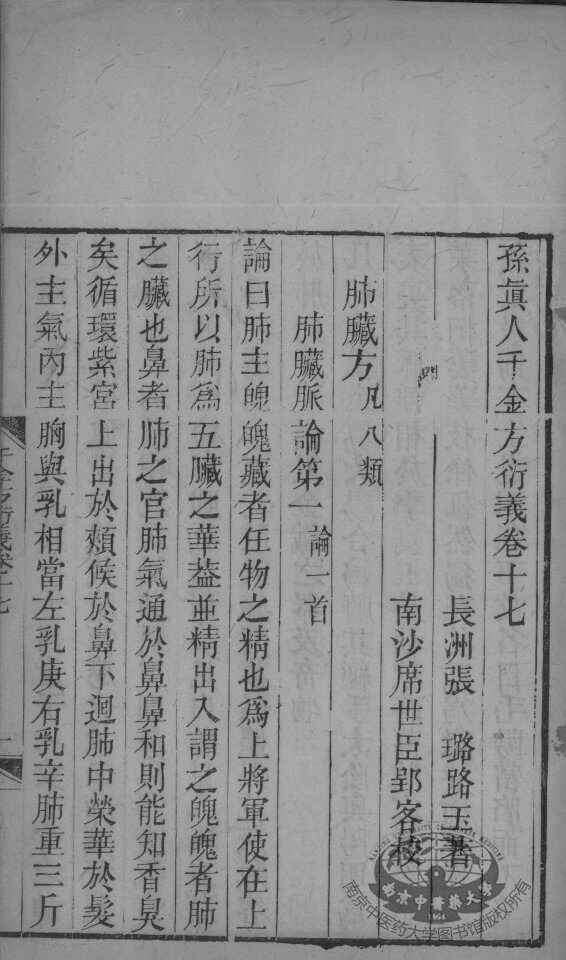 孫真人千金方衍義卷十七
長洲張 璐路玉著
南沙席世臣郢客校
肺臟方凡八類
肺臟脈論第一論一首
論曰肺主魄魄藏者任物之精也爲上將軍使在上
行所以肺爲五臟之華葢並精出入謂之魄魄者肺
之臟也鼻者肺之官肺氣通於鼻鼻和則能知香臭
矣循環紫宮上出於頰候於鼻下迴肺中榮華於髮
外主氣內主胸與乳相當左乳庚右乳辛肺重三斤
千金方衍義卷十七
一
南京中醫藥大學
NANJING UNIVERSITY OF CHINESE MEDICINE
1954
南京中医药大学图书馆版权所有